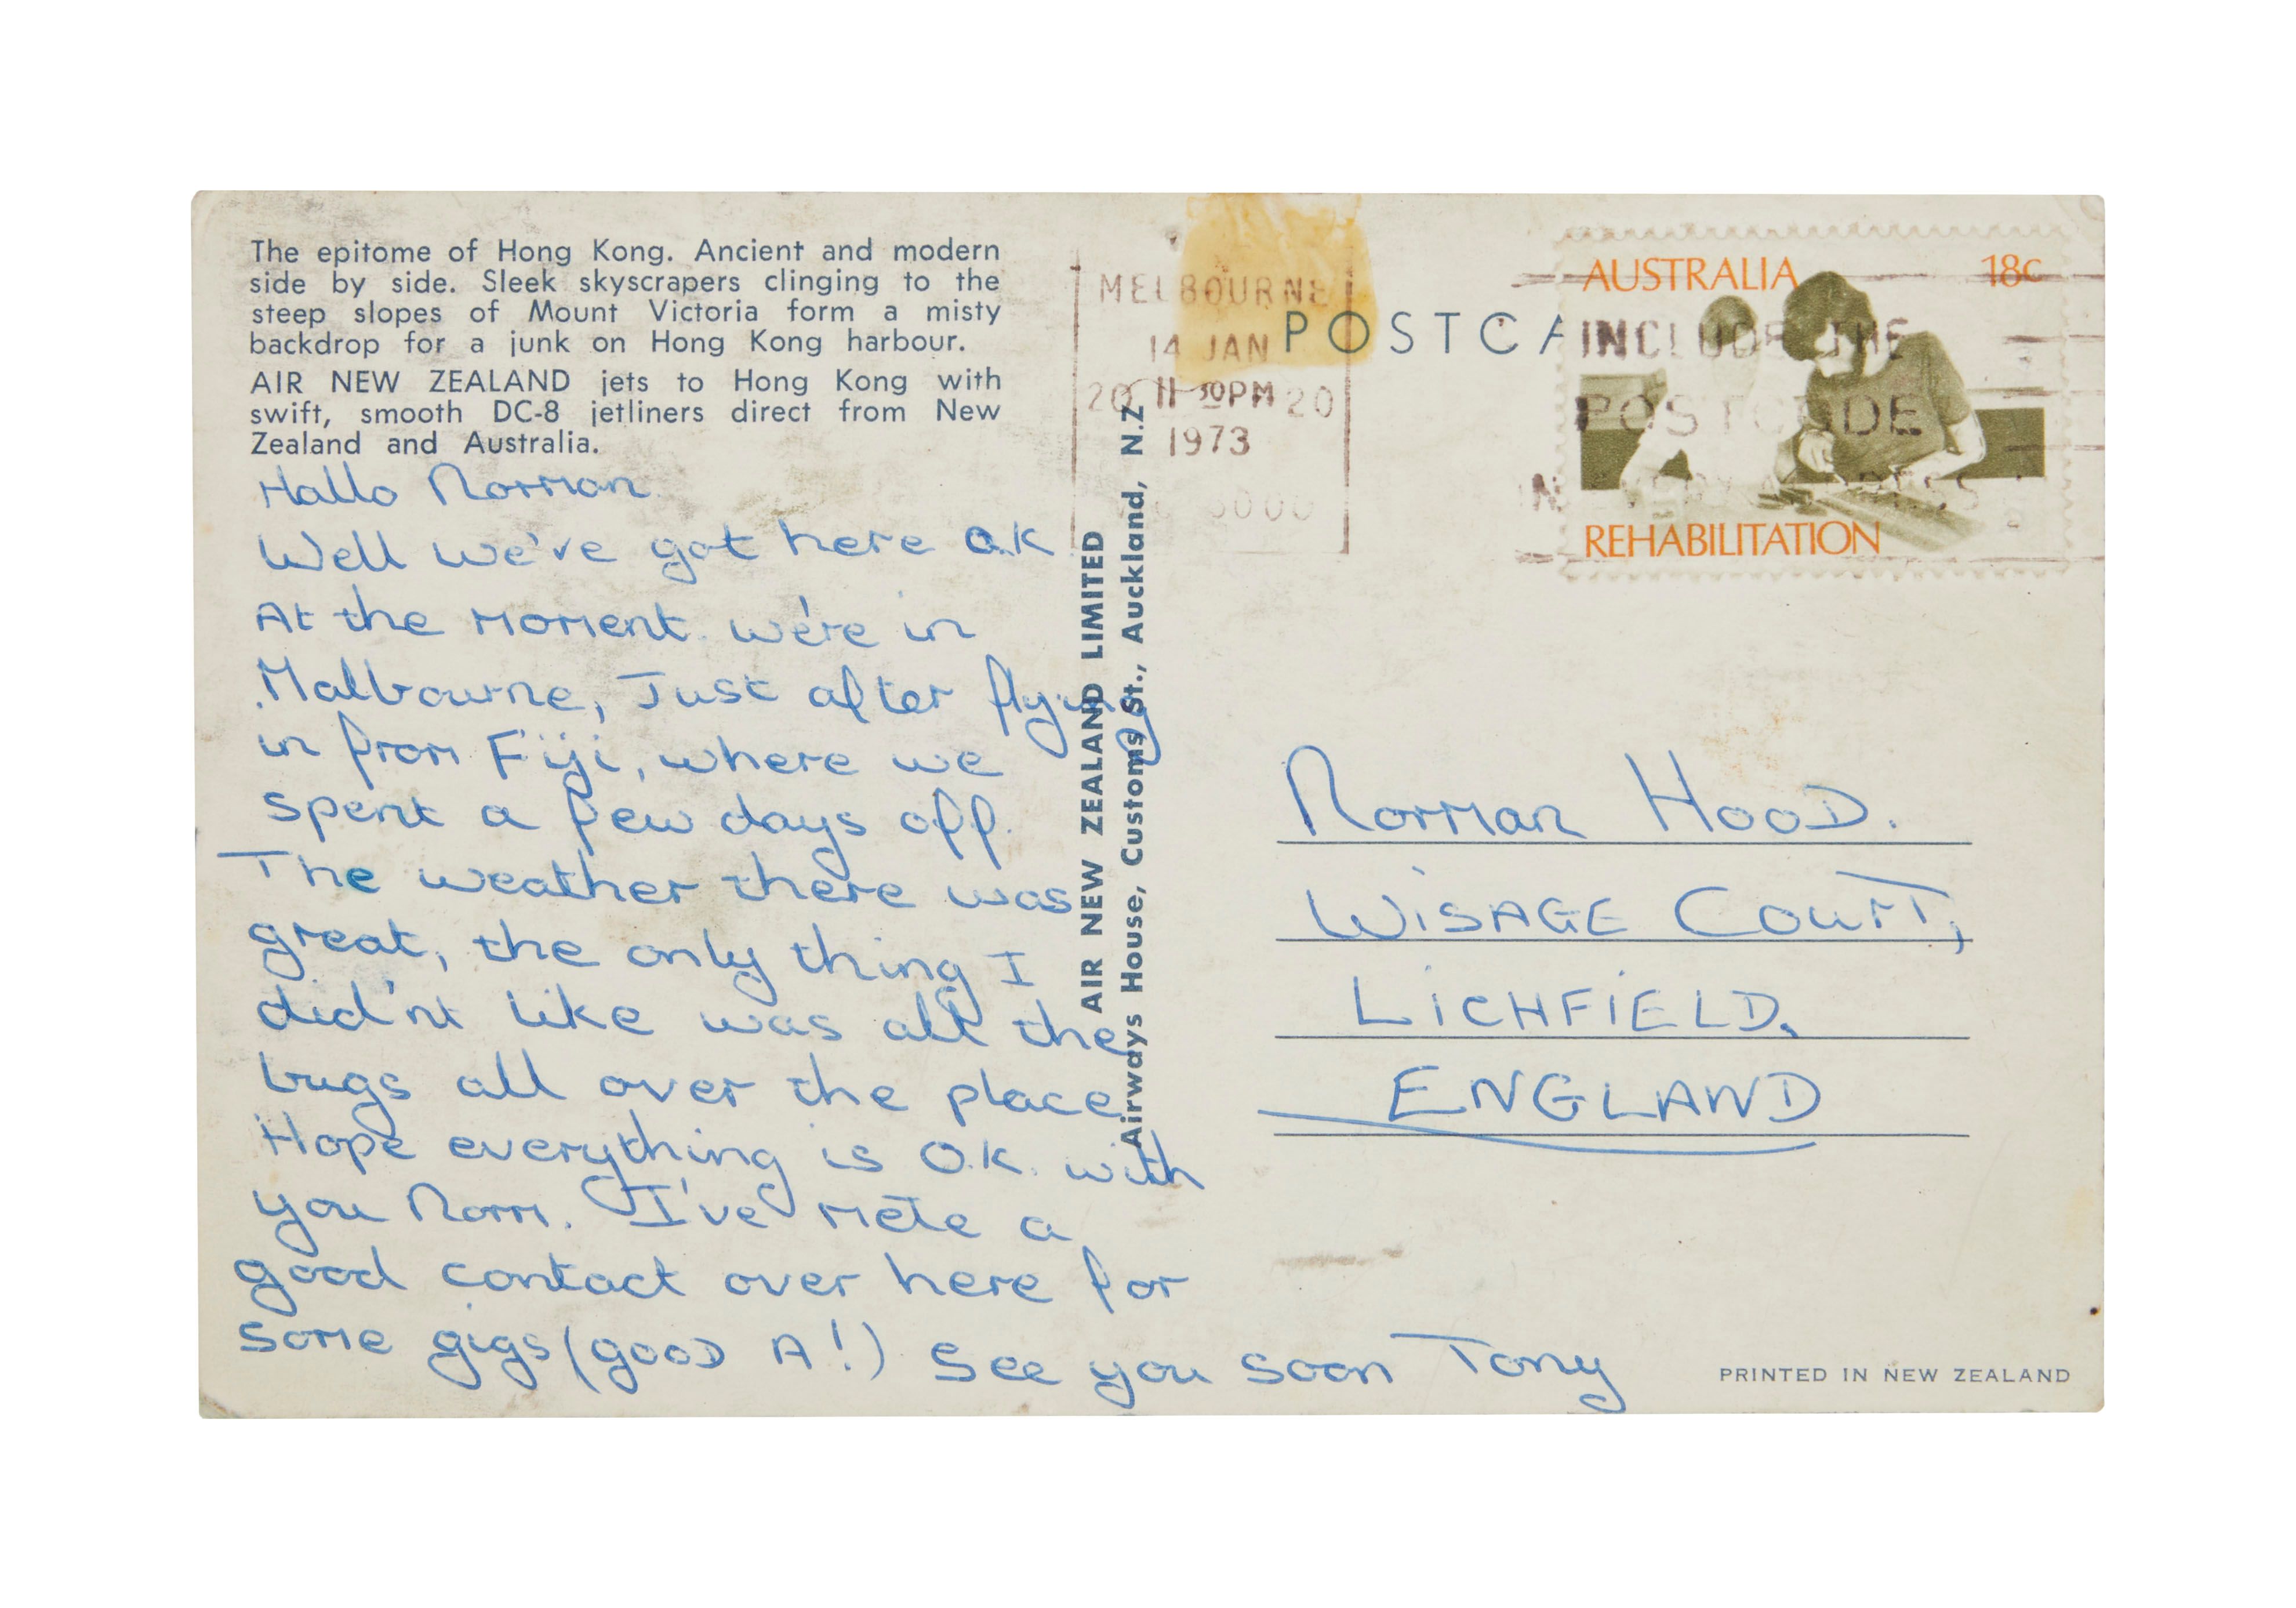 The epitome of Hong Kong. Ancient and modern
side by side. Sleek skyscrapers clinging to the
steep slopes of Mount Victoria form a misty
backdrop for a junk on Hong Kong harbour.
AIR NEW ZEALAND jets to Hong Kong with
swift, smooth DC-8 jetliners direct from New
Zealand and Australia.
Hallo Norman
Well we've got here O.K
At the moment we're in
Malbourne, Just after flying
in from Fiji, where we
spent a few days off.
The weather there was
great, the only thing I
did'nt like was all the
bugs all over the place
Hope everything is O.K. with
you Norm. I've mete a
good contact over here for
some gigs (good A!) See you soon Tony
AIR NEW ZEALAND LIMITED
Airways House, Customs St., Auckland, N.Z.
MELBOURNE
14 JAN
20 11 30PM 20
1973
3000
POSTCA
AUSTRALIA 18c
REHABILITATION
INCLUDE THE
POSTCODE
IN EVERY ADDRESS
Norman HooD.
WiSAGE CourT,
LiCHFiELD,
ENGLAND
PRINTED IN NEW ZEALAND